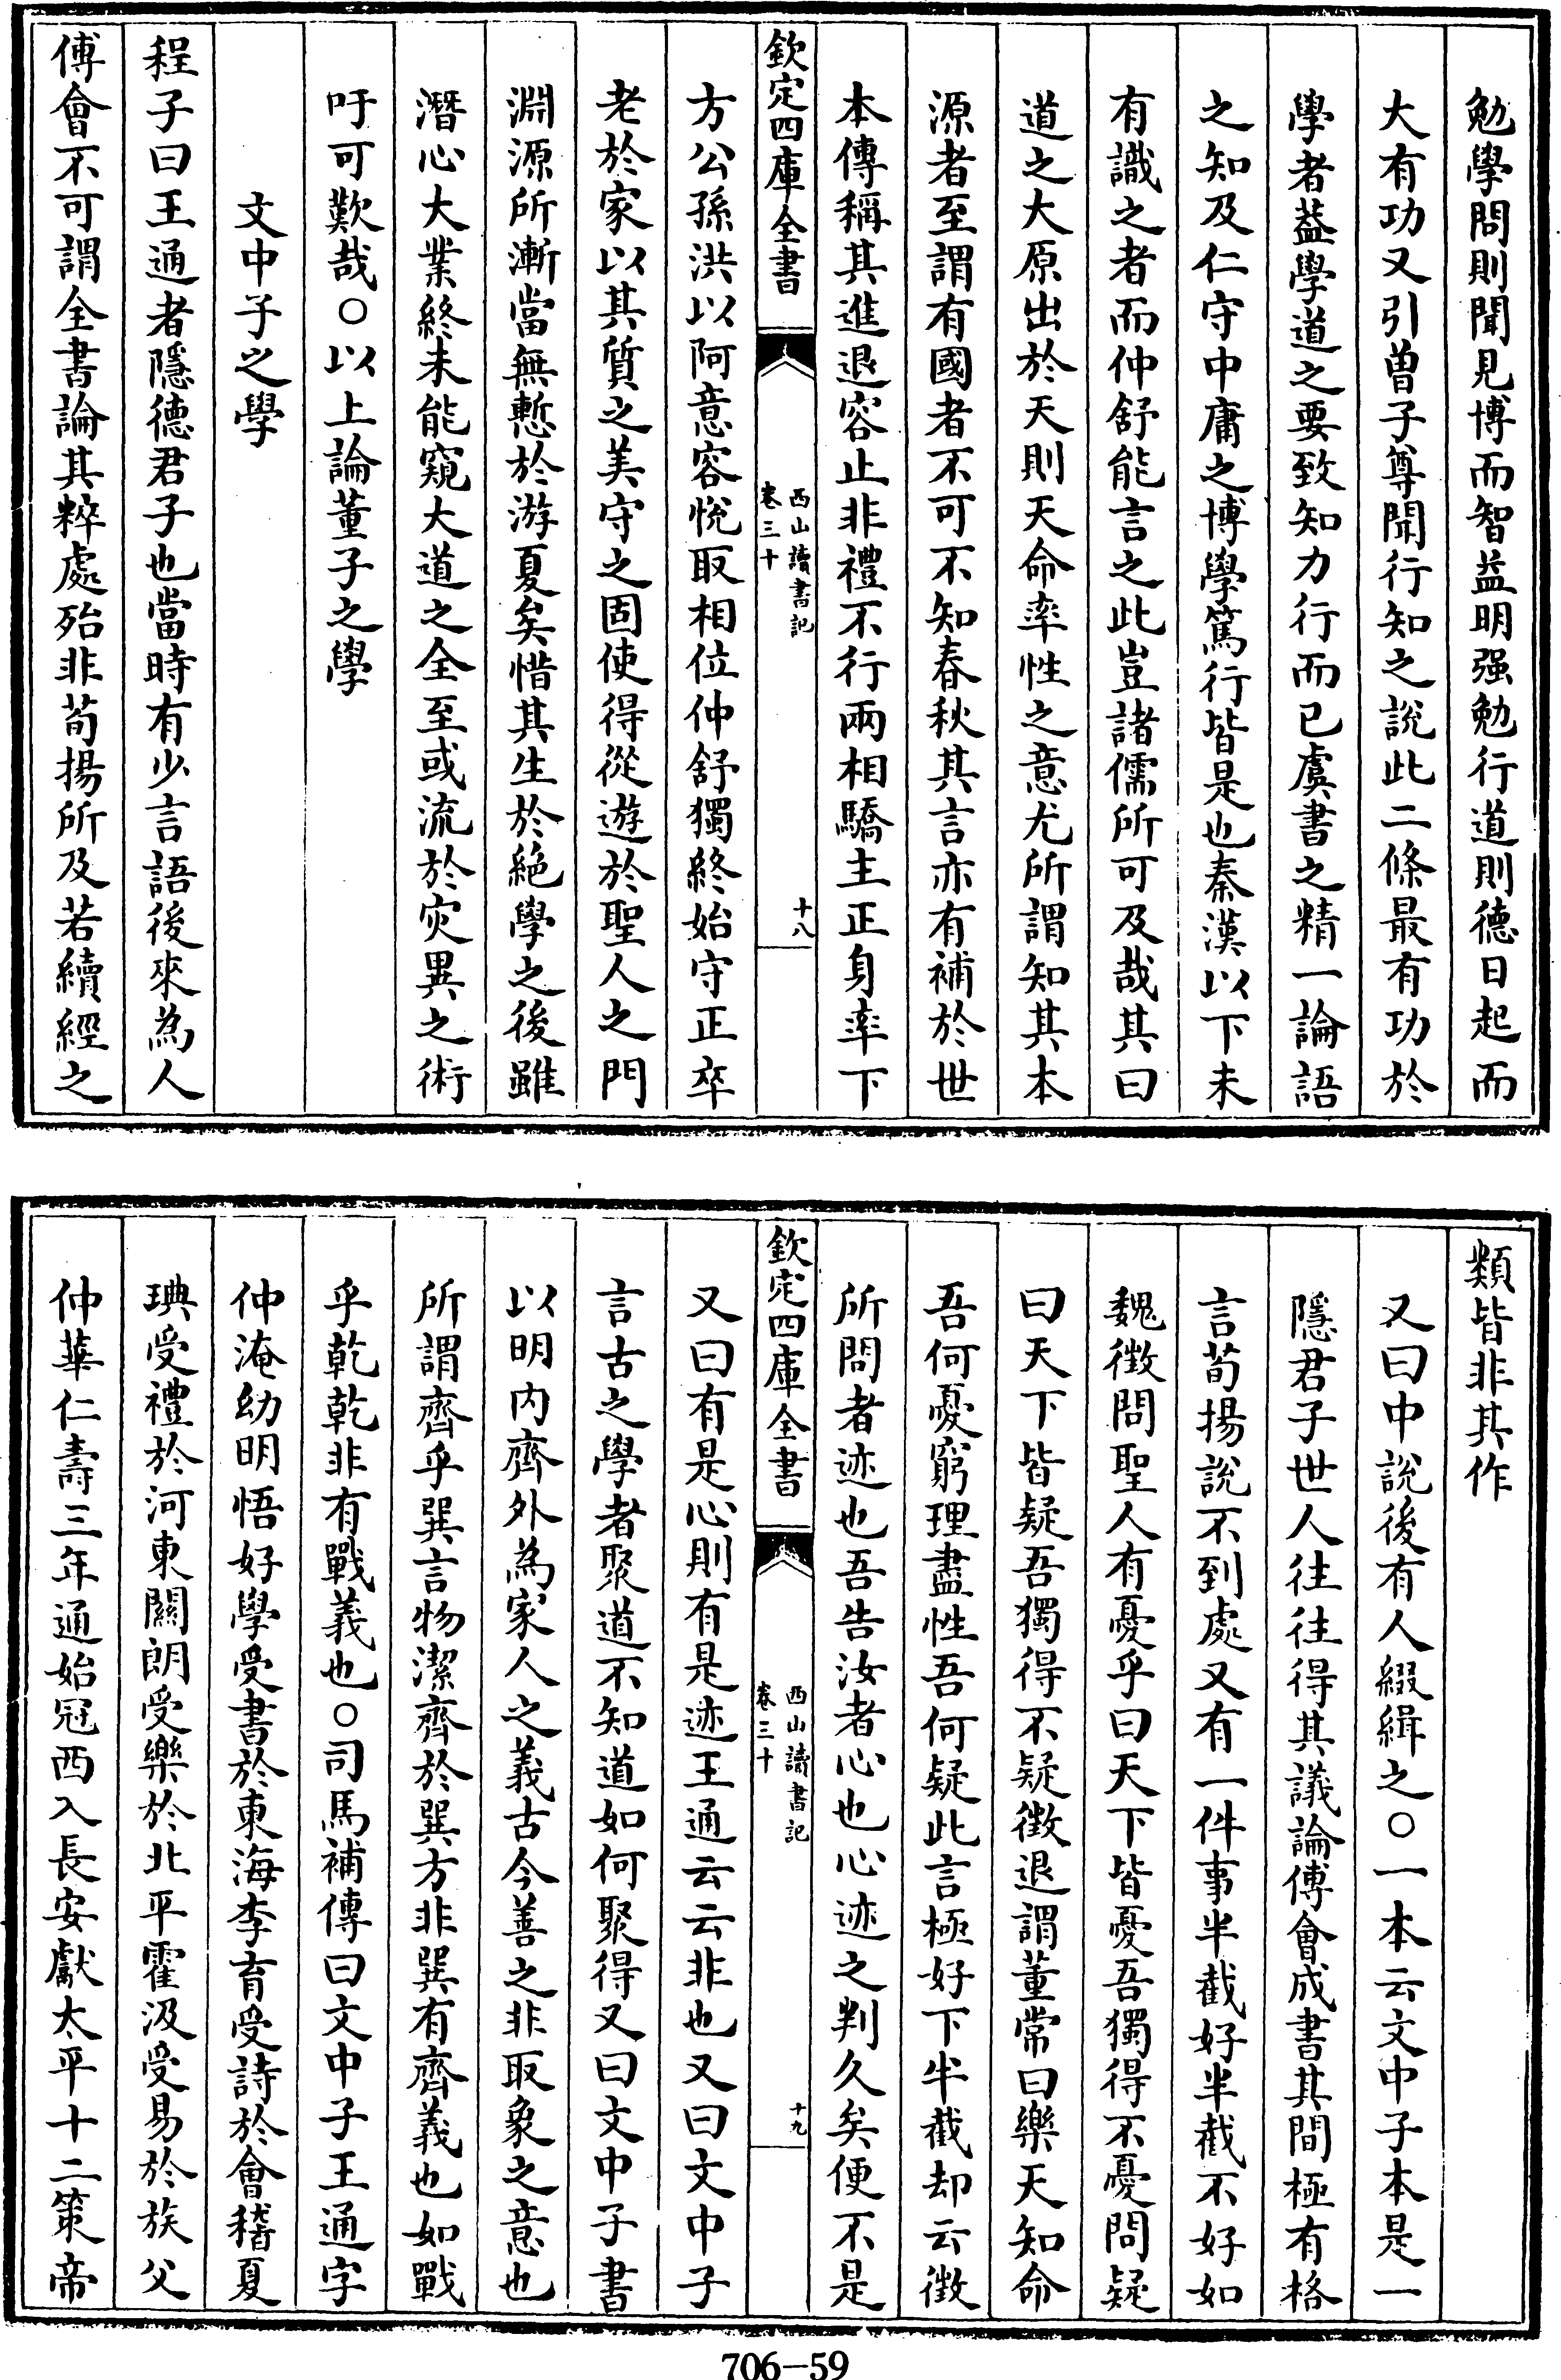 勉學問則聞見博而智益明强勉行道則德日起而
大有功又引曽子尊聞行知之說此二條最有功於
學者葢學道之要致知力行而已虞書之精一論語
之知及仁守中庸之博學篤行皆是也秦漢以下未
有識之者而仲舒能言之此豈諸儒所可及哉其曰
道之大原出於天則天命率性之意尤所謂知其本
源者至謂有國者不可不知春秋其言亦有補於世
本傳稱其進退容止非禮不行兩相驕主正身率下
欽定四庫全書
西山讀書記
卷三十
十八
方公孫洪以阿意容悅取相位仲舒獨終始守正卒
老於家以其質之美守之固使得從遊於聖人之門
淵源所漸當無慙於游夏矣惜其生於絶學之後雖
潛心大業終未能窺大道之全至或流於灾異之術
吁可歎哉○以上論董子之學
文中子之學
程子曰王通者隱德君子也當時有少言語後來為人
傅會不可謂全書論其粹處殆非荀揚所及若續經之
類皆非其作
又曰中說後有人綴緝之○一本云文中子本是一
隱君子世人往往得其議論傅會成書其間極有格
言荀揚說不到處又有一件事半截好半截不好如
魏徴問聖人有憂乎曰天下皆憂吾獨得不憂問疑
曰天下皆疑吾獨得不疑徴退謂董常曰樂天知命
吾何憂窮理盡性吾何疑此言極好下半截却云徴
所問者迹也吾告汝者心也心迹之判久矣便不是
欽定四庫全書
西山讀書記
卷三十
十九
又曰有是心則有是迹王通云云非也又曰文中子
言古之學者聚道不知道如何聚得又曰文中子書
以明内齊外為家人之義古今善之非取象之意也
所謂齊乎巽言物潔齊於巽方非巽有齊義也如戰
乎乾乾非有戰義也○司馬補傳曰文中子王通字
仲淹幼明悟好學受書於東海李育受詩於會稽夏
琠受禮於河東關朗受樂於北平霍汲受易於族父
仲華仁壽三年通始冠西入長安獻太平十二策帝
706-59